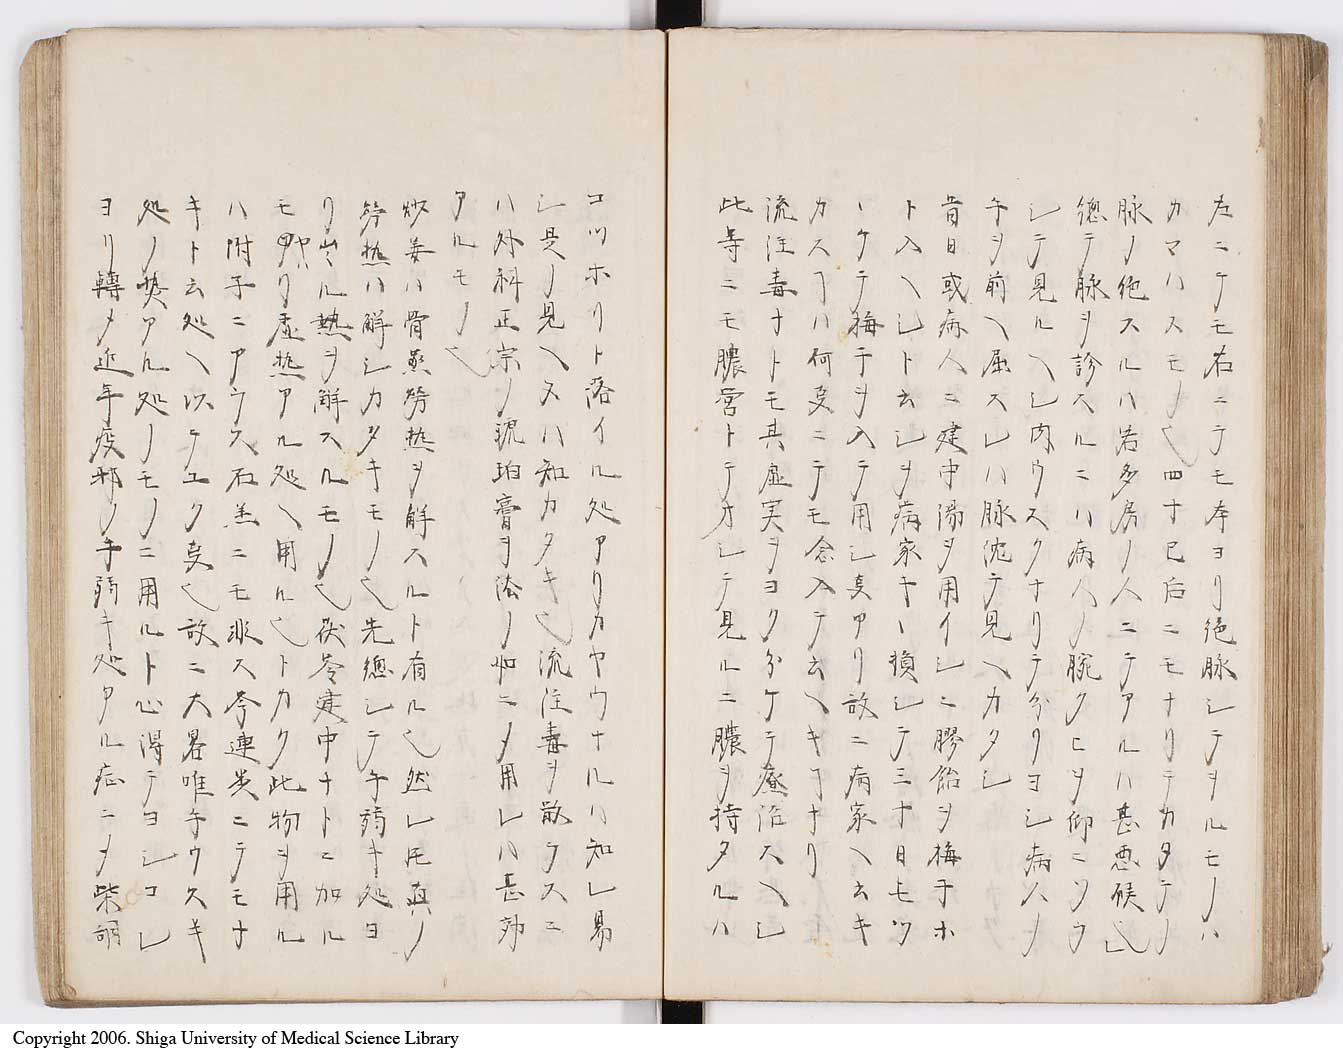 左ニテモ右ニテモ本ヨリ絶脉シテヲルモノハ
カマハスモノ也四十已后ニモナリテカタテノ
脉ノ絶スルハ若多房ノ人ニテアルハ甚悪候也」
徳テ脉ヲ診スルニハ病人ノ腕クヒヲ仰ニツウ
シテ見ルヘシ内ウスクナリテ分リヨシ病人ノ
手ヲ前ヘ屈スレハ脉沈テ見ヘカタシ
昔日或病人ニ建中湯ヲ用イシニ膠飴ヲ梅干ホ
ト入ヘシト云シヲ病家キヽ損シテ三十日モツ
ヽケテ梅干ヲ入テ用シ事アリ故ニ病家ヘ云キ
カスヿハ何事ニテモ念入テ云ヘキヿナリ
流注毒ナトモ其虚実ヲヨク分ケテ療治スヘシ
此等ニモ膿営トテオシテ見ルニ膿ヲ持タルハ
コツホリト落イル処アリカヤウナルハ知レ易
シ是ノ見ヘヌハ知カタキ也流注毒ヲ散ラスニ
ハ外科正宗ノ琥珀膏ヲ法ノ如ニメ用レハ甚効
アルモノ也
炒姜ハ骨蒸労熱ヲ解スルト有ル也然レ𪜈真ノ
労熱ハ解シカタキモノ也先徳シテ手弱キ処ヨ
リ出ル熱ヲ解スルモノ也茯苓建中ナトニ加ル
モヤハリ虚熱アル処ヘ用ル也トカク此物ヲ用ル
ハ附子ニアラス石羔ニモ非ス芩連炭ニテモナ
キト云処ヘ以テユク事也故ニ大畧唯手ウスキ
処ノ熱アル処ノモノニ用ルト心得テヨシコレ
ヨリ轉メ近年疫邪ノ手弱キ処アル症ニメ柴胡
Copyright 2006. Shiga University of Medical Science Library